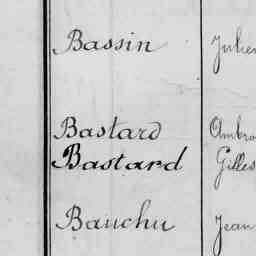 Bassin Julien
Bastard Ambro
Bastard Gilles
Bauchu Jean